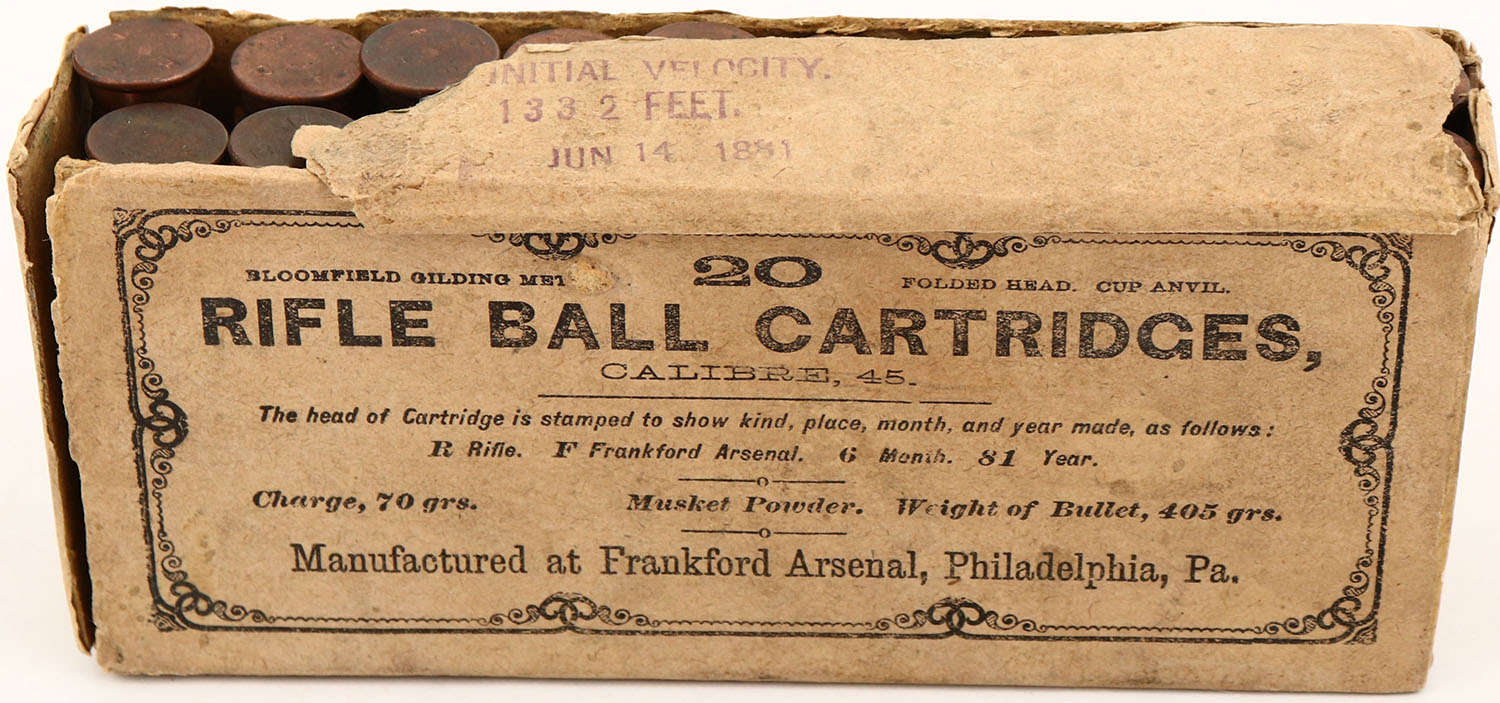 INITIAL VELOCITY.
1332 FEET.
JUN 14 1881
BLOOMFIELD GILDING MET 20 FOLDED HEAD. CUP ANVIL.
RIFLE BALL CARTRIDGES,
CALIBRE, 45.
The head of Cartridge is stamped to show kind, place, month, and year made, as follows:
R Rifle. F Frankford Arsenal. 6 Month. 81 Year.
Charge, 70 grs. Musket Powder. Weight of Bullet, 405 grs.
Manufactured at Frankford Arsenal, Philadelphia, Pa.